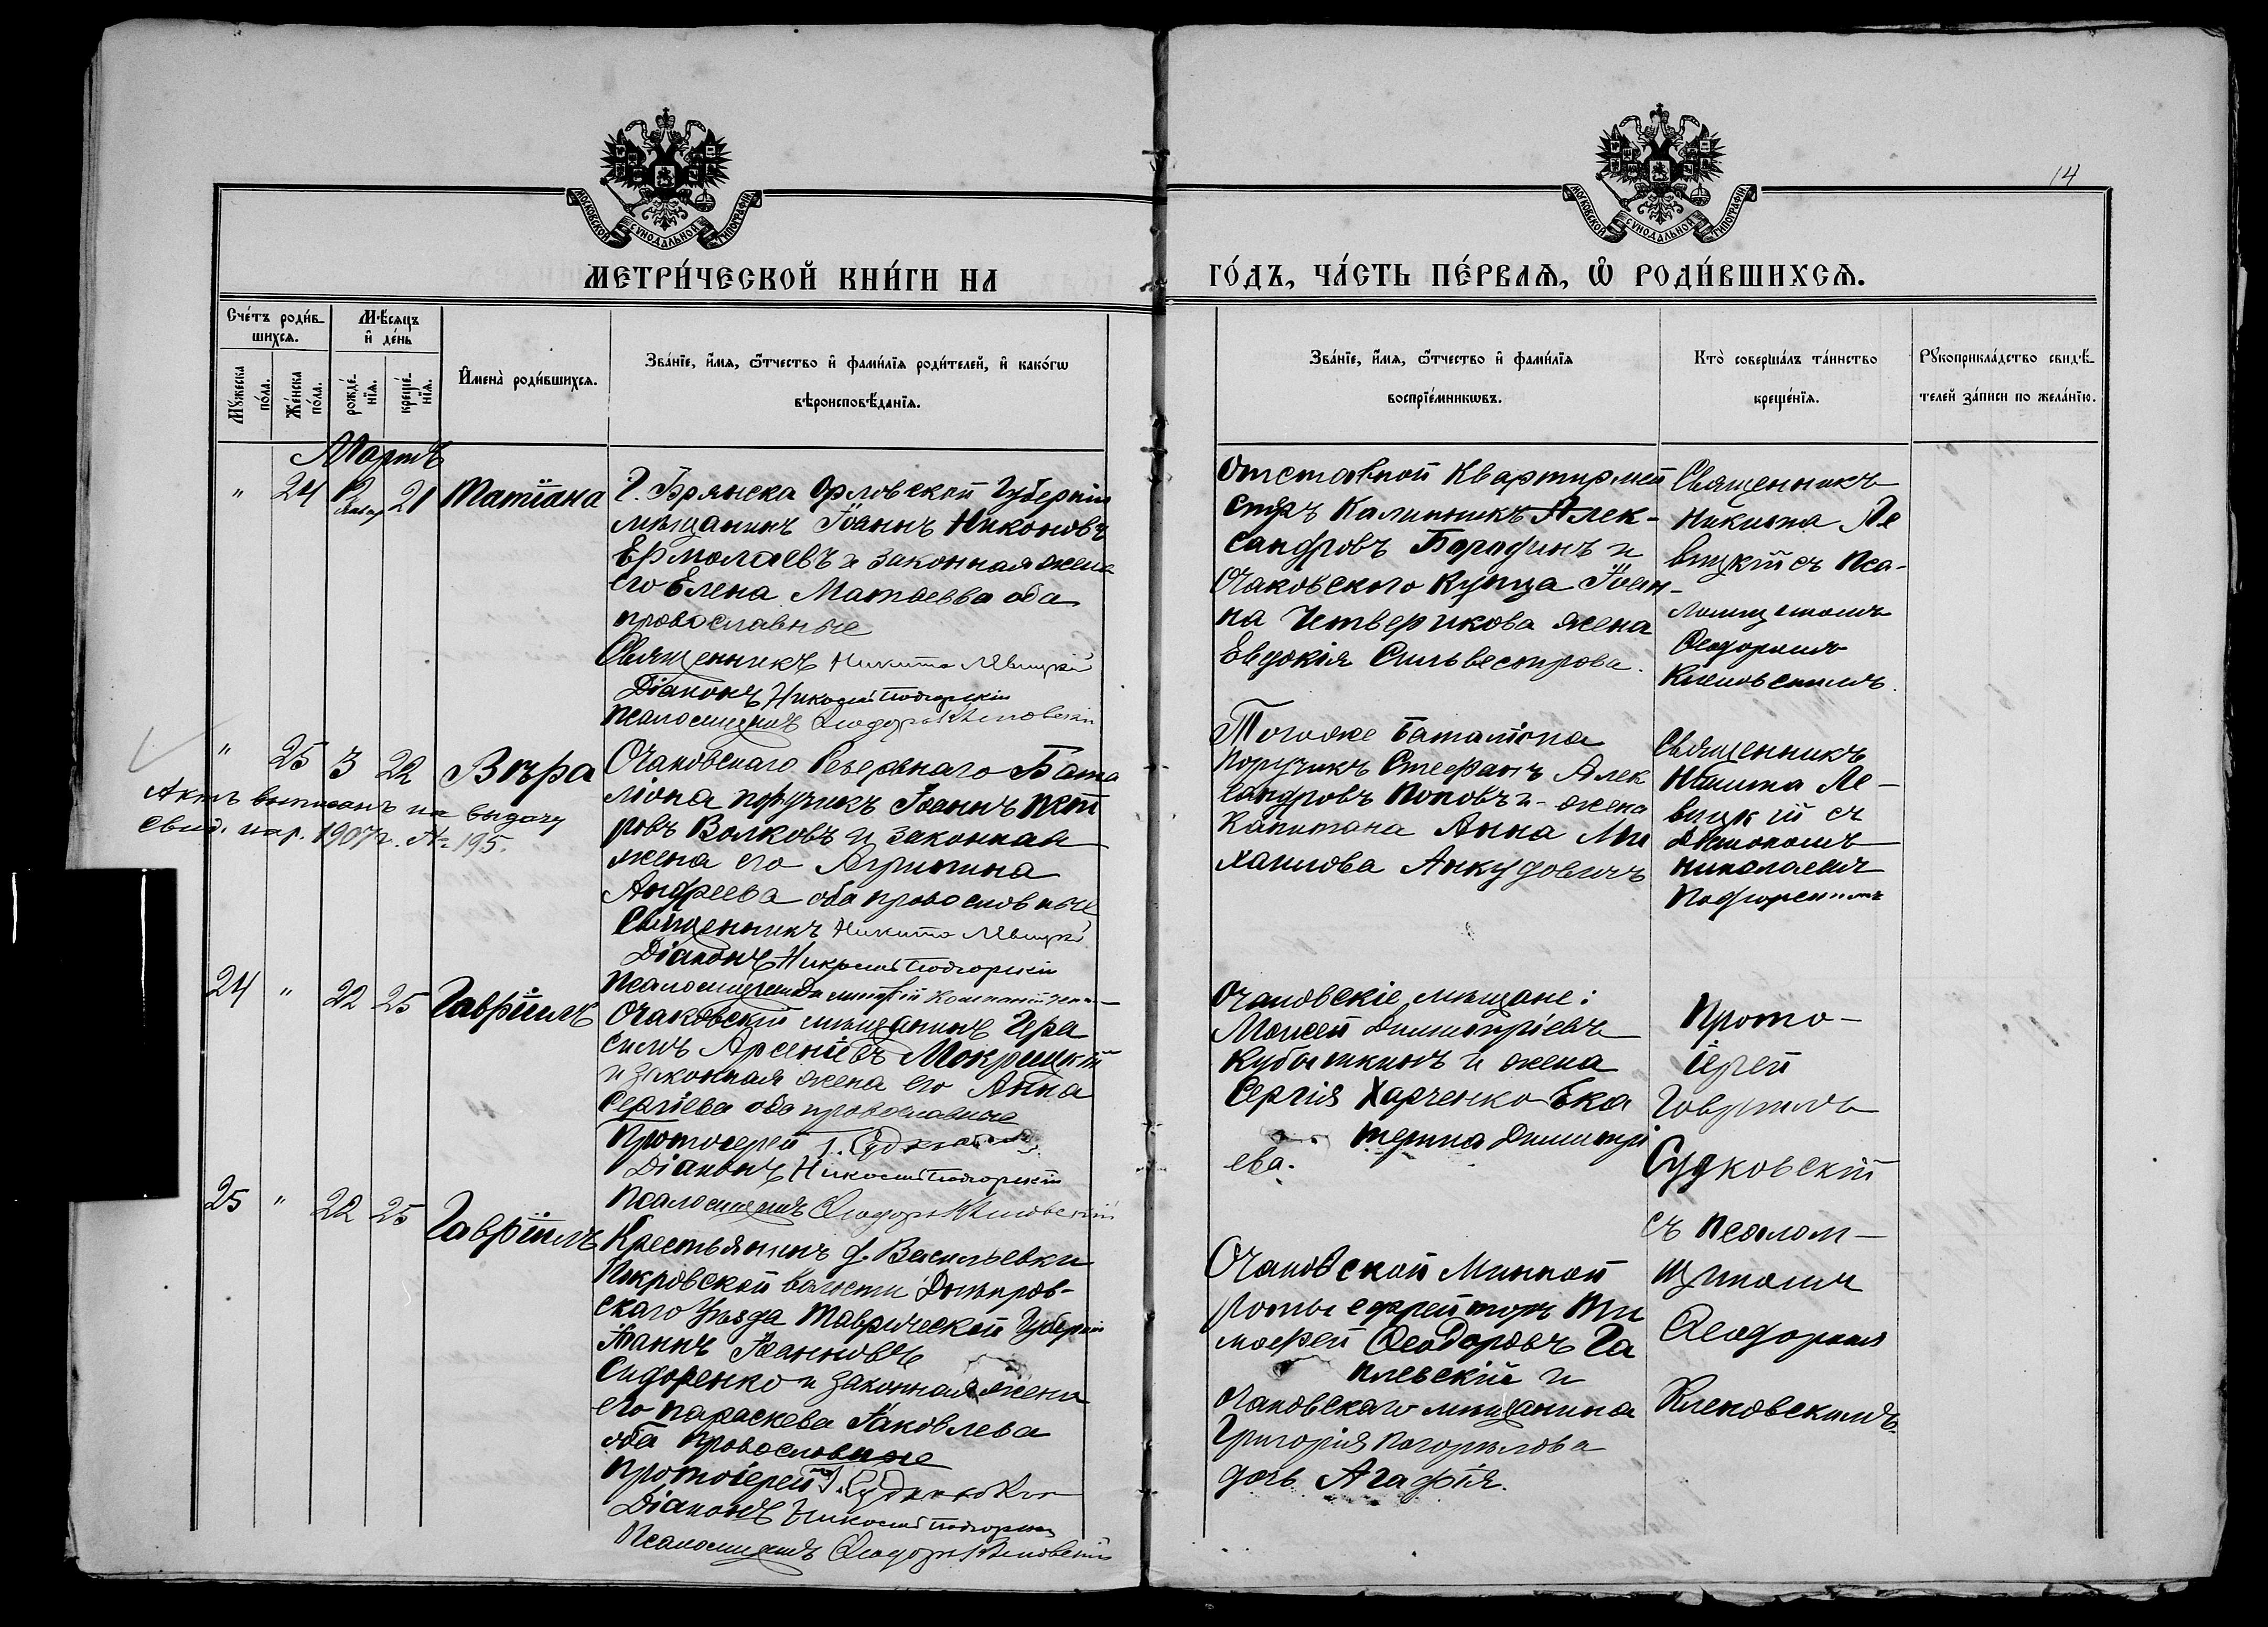 14
МОСКОВСКОЙ СУНОДАЛЬНОЙ ТИПОГРАФІИ
МОСКОВСКОЙ СУНОДАЛЬНОЙ ТИПОГРАФІИ
МЕТРИ́ЧЕСКОЙ КНИ́ГИ НА
ГО́ДЪ, ЧА́СТЬ ПЕ́РВАѦ, Ѡ҆ РОДИ́ВШИХСѦ.
Сче́тъ роди́в-
шихсѧ.
Мѣ́сѧцъ
и҆ де́нь
Мꙋжеска
по́ла.
Же́нска
по́ла.
рожде́-
нїѧ.
креще́-
нїѧ.
И҆мена̀ роди́вшихсѧ.
Зва́нїе, и҆́мѧ, ѻ҆́тчество и҆ фами́лїѧ роди́телей, и҆ како́гѡ
вѣроисповѣ́данїѧ.
Зва́нїе, и҆́мѧ, ѻ҆́тчество и҆ фами́лїѧ
воспрїе́мникѡвъ.
Кто̀ соверша́лъ та́инство
креще́нїѧ.
Рꙋкоприкла́дство свидѣ́-
телей за́писи по жела́нїю.
Мартъ
" 24 21 Татіана
Г. Брянска Орловской Губерніи
мѣщанинъ Іоаннъ Никоновъ
Ермолаевъ и законная жена
его Елена Матвеева оба
православные
Священникъ Никита Лѣвицкій
Діаконъ Николай Подгорскій
Псаломщикъ Ѳеодоръ
Отставной Квартирмей
стръ Калинникъ Алек-
сандровъ Бородинъ и
Очаковского Купца Іоан-
на Четверикова жена
Евдокія Сильвестрова.
Священникъ
Никита Ле
вицкій съ Пса-
ломщикомъ
Ѳеодоромъ
" 25 3 22 Вѣра
Актъ выписанъ на выдачу
свид. 1907 г. № 195.
Очаковскаго Резервнаго Бата
ліона поручикъ Іоаннъ Пет
ровъ Волковъ и законная
жена его Агрипина
Андреева оба православные
Священникъ Никита Лѣвицкій
Діаконъ Николай Подгорскій
Псаломщикъ Димитрій
Тогоже Баталіона
Поручикъ Стефанъ Алек
сандровъ Поповъ и жена
Капитана Анна Ми
хаилова Анкудовичъ
Священникъ
Никита Ле-
вицкій съ
Діакономъ
Николаемъ
Подгорскимъ
24 " 22 25 Гавріилъ
Очаковскій мѣщанинъ Гера
симъ Арсеніевъ Мокрицкій
и законная жена его Анна
Сергіева оба православные
Протоіерей Г. Судковскій
Діаконъ Николай Подгорскій
Псаломщикъ Ѳеодоръ
Очаковскіе мѣщане:
Моисей Димитріевъ
Кубышкинъ и жена
Сергія Харченко Ека
терина Димитрі
ева.
Прото-
іерей
Гавріилъ
Судковскій
съ псалом-
щикомъ
Ѳеодоромъ
25 " 22 25 Гавріилъ
Крестьянинъ д. Васильевки
Покровской волости Днѣпров-
скаго Уѣзда Таврической Губерніи
Іоаннъ Іоанновъ
Сидоренко и законная жена
его Параскева Іаковлева
оба православные
Протоіерей Г. Судковскій
Діаконъ Николай Подгорскій
Псаломщикъ Ѳеодоръ
Очаковской Минной
роты ефрейторъ Ти
мофей Ѳеодоровъ Га
плевскій и
очаковскаго мѣщанина
Григорія Погорѣлова
дочь Агафія.